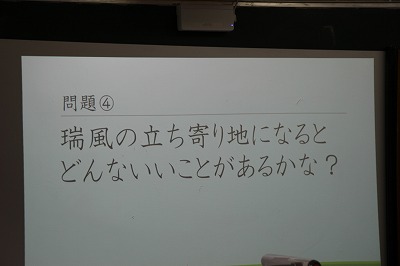 問題④
瑞風の立ち寄り地になると
どんないいことがあるかな？